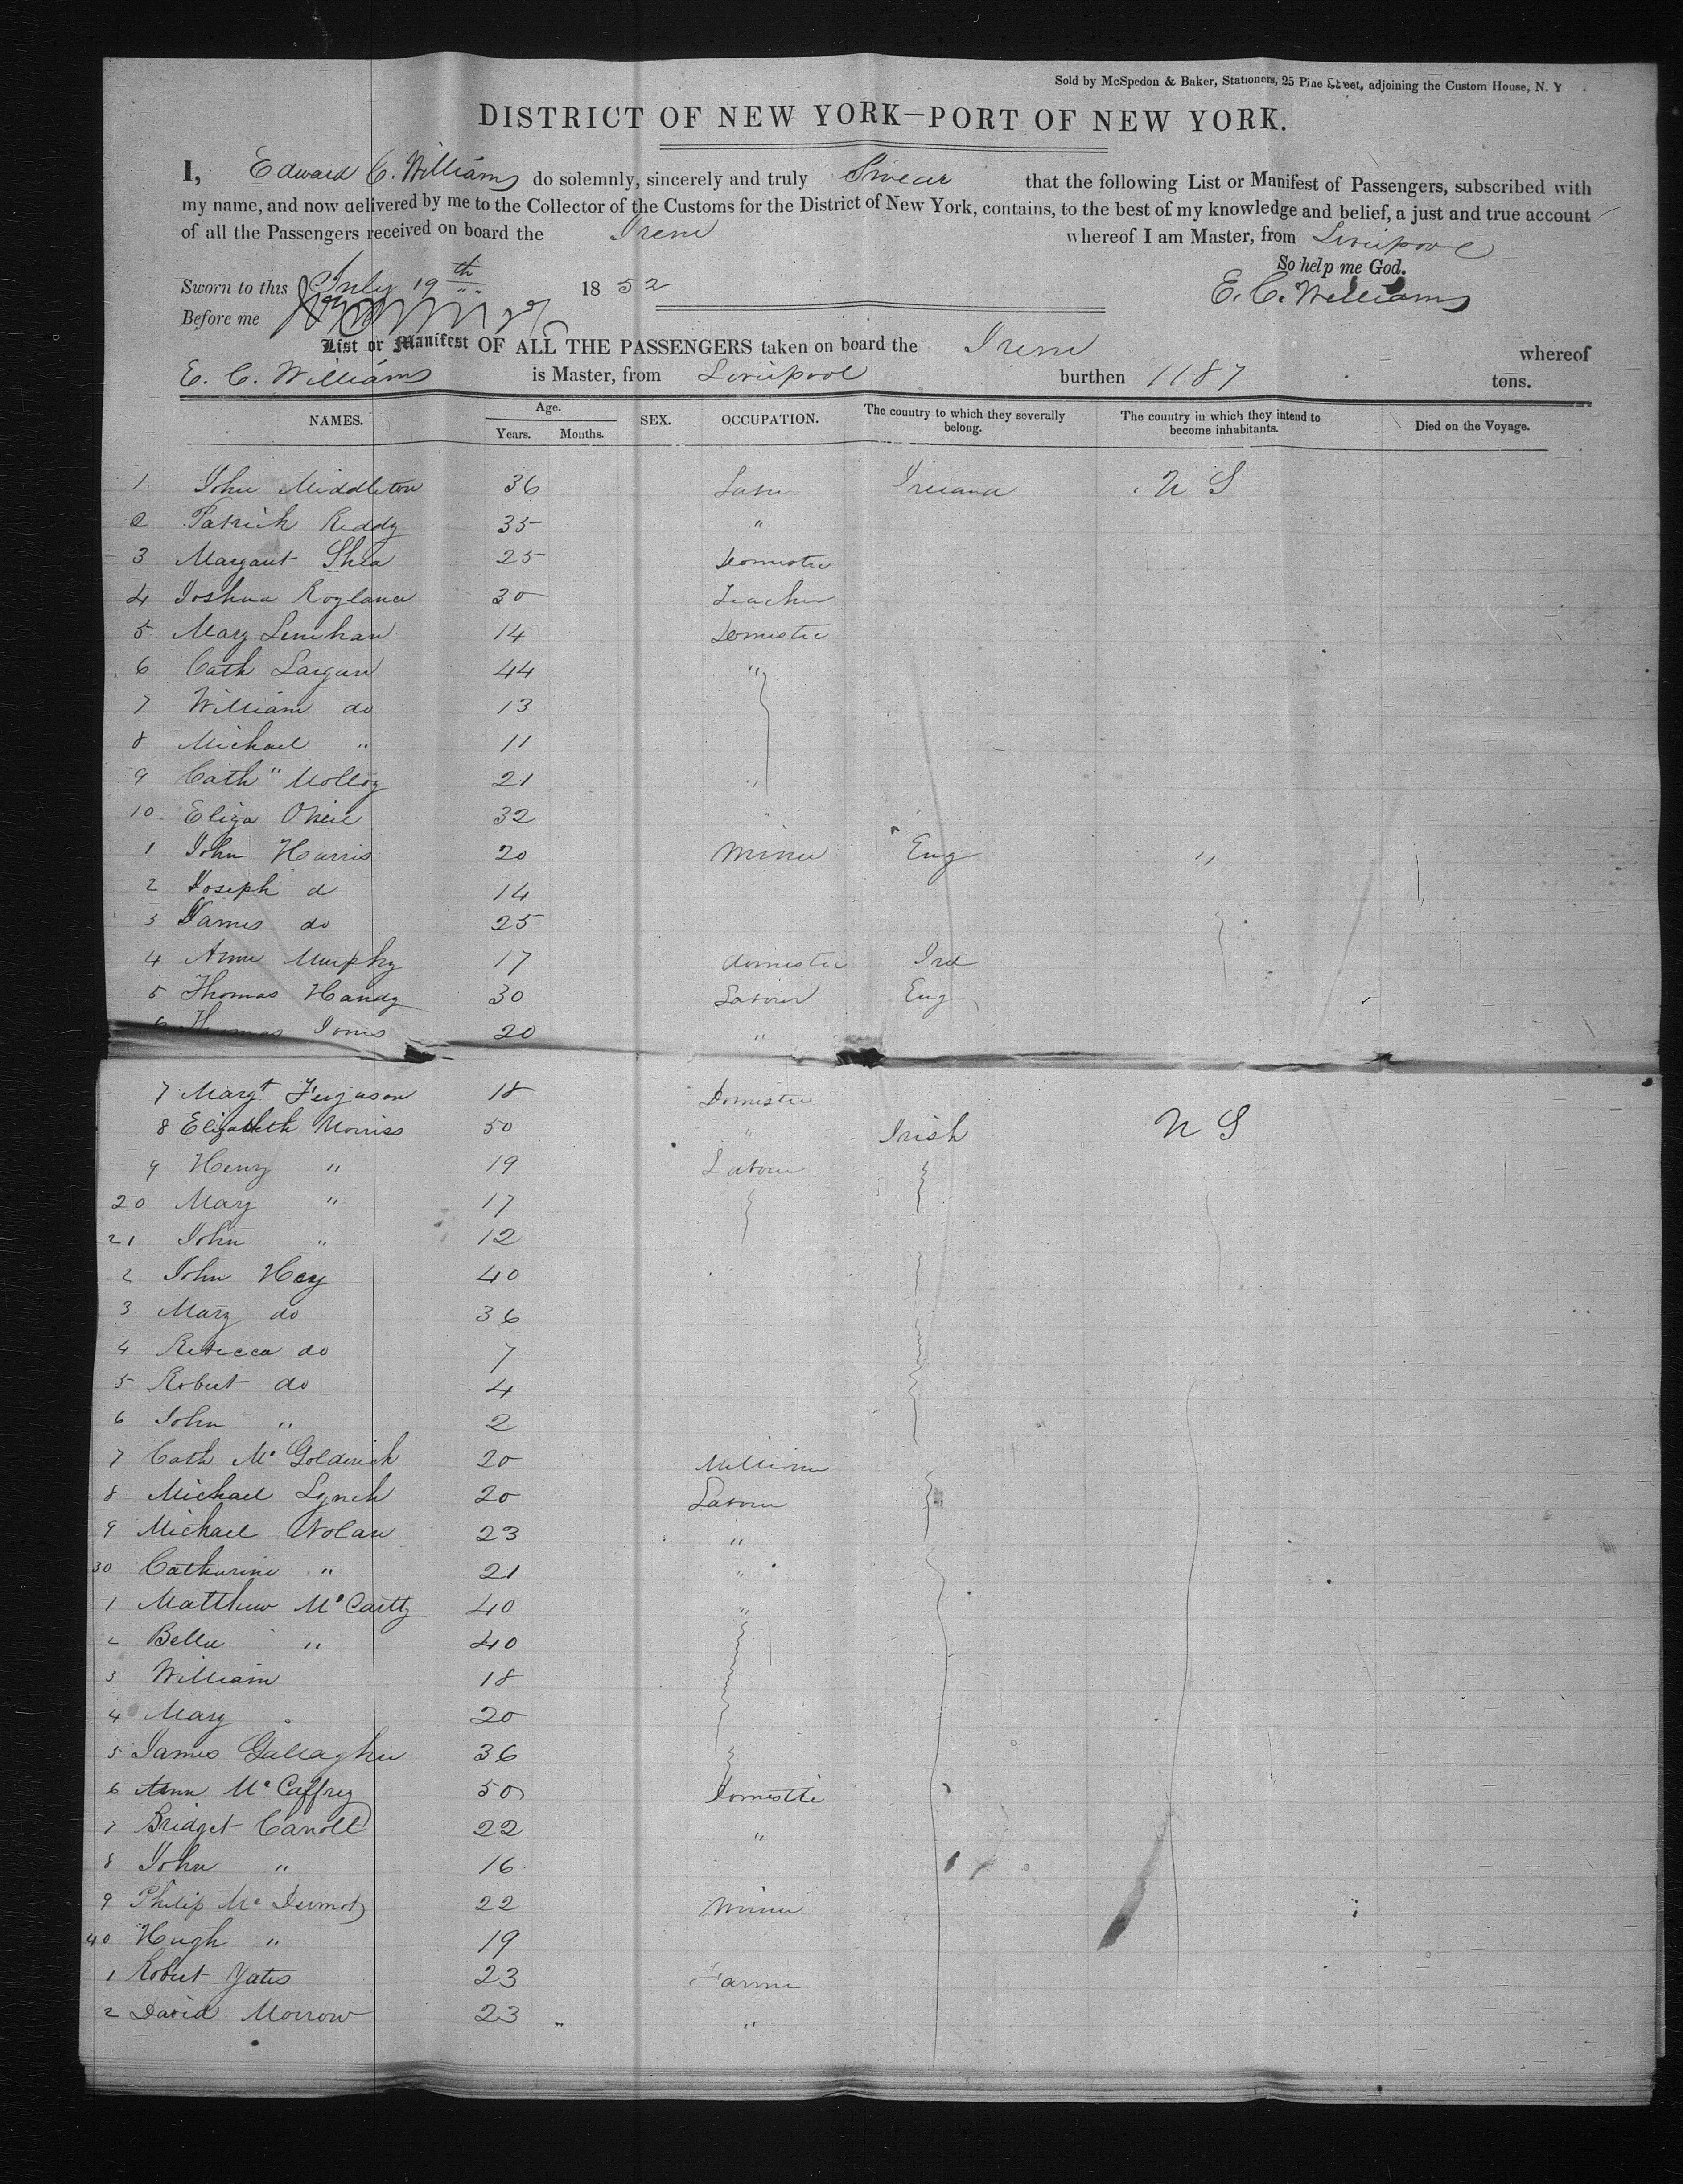 Sold by McSpedon & Baker, Stationers, 25 Pine Street, adjoining the Custom House, N. Y
DISTRICT OF NEW YORK—PORT OF NEW YORK.
I, Edward C. Williams do solemnly, sincerely and truly Swear that the following List or Manifest of Passengers, subscribed with
my name, and now delivered by me to the Collector of the Customs for the District of New York, contains, to the best of my knowledge and belief, a just and true account
of all the Passengers received on board the Irene whereof I am Master, from Liverpool
So help me God.
Sworn to this July 19th 1852 E. C. Williams
Before me
List or Manifest OF ALL THE PASSENGERS taken on board the Irene whereof
E. C. Williams is Master, from Liverpool burthen 1187 tons.
NAMES. Age. Years. Months. SEX. OCCUPATION. The country to which they severally belong. The country in which they intend to become inhabitants. Died on the Voyage.
1 John Middleton 36 Ireland U S
2 Patrick Reddy 35 "
3 Margaret Shea 25 Domestic
4 Joshua 30 Teacher
5 Mary Lenihan 14 Domestic
6 Cath Largan 44 "
7 William do 13
8 Michael " 11
9 Cath" Molloy 21 "
10 Eliza O'Neil 32
1 John Harris 20 Miner Eng "
2 Joseph d 14
3 James do 25
4 Anne Murphy 17 domestic Ird
5 Thomas Handy 30 Labourer Eng
6 Thomas Jones 20 "
7 Margt Ferguson 18 Domestic
8 Elizabeth Morriss 50 " Irish U S
9 Henry " 19 Labourer
20 Mary " 17
21 John " 12
2 John Hay 40
3 Mary do 36
4 Rebecca do 7
5 Robert do 4
6 John " 2
7 Cath McGolderick 20 Milliner
8 Michael Lynch 20 Labourer
9 Michael Nolan 23 "
30 Catharine " 21 "
1 Matthew McCartty 40 "
2 Bella " 40
3 William 18
4 Mary 20
5 James Gallagher 36
6 Ann McCaffrey 50 Domestic
7 Bridget Carroll 22 "
8 John " 16
9 Philip McDermott 22 Miner
40 Hugh " 19
1 Robert Yates 23 Farmer
2 David Morrow 23 "